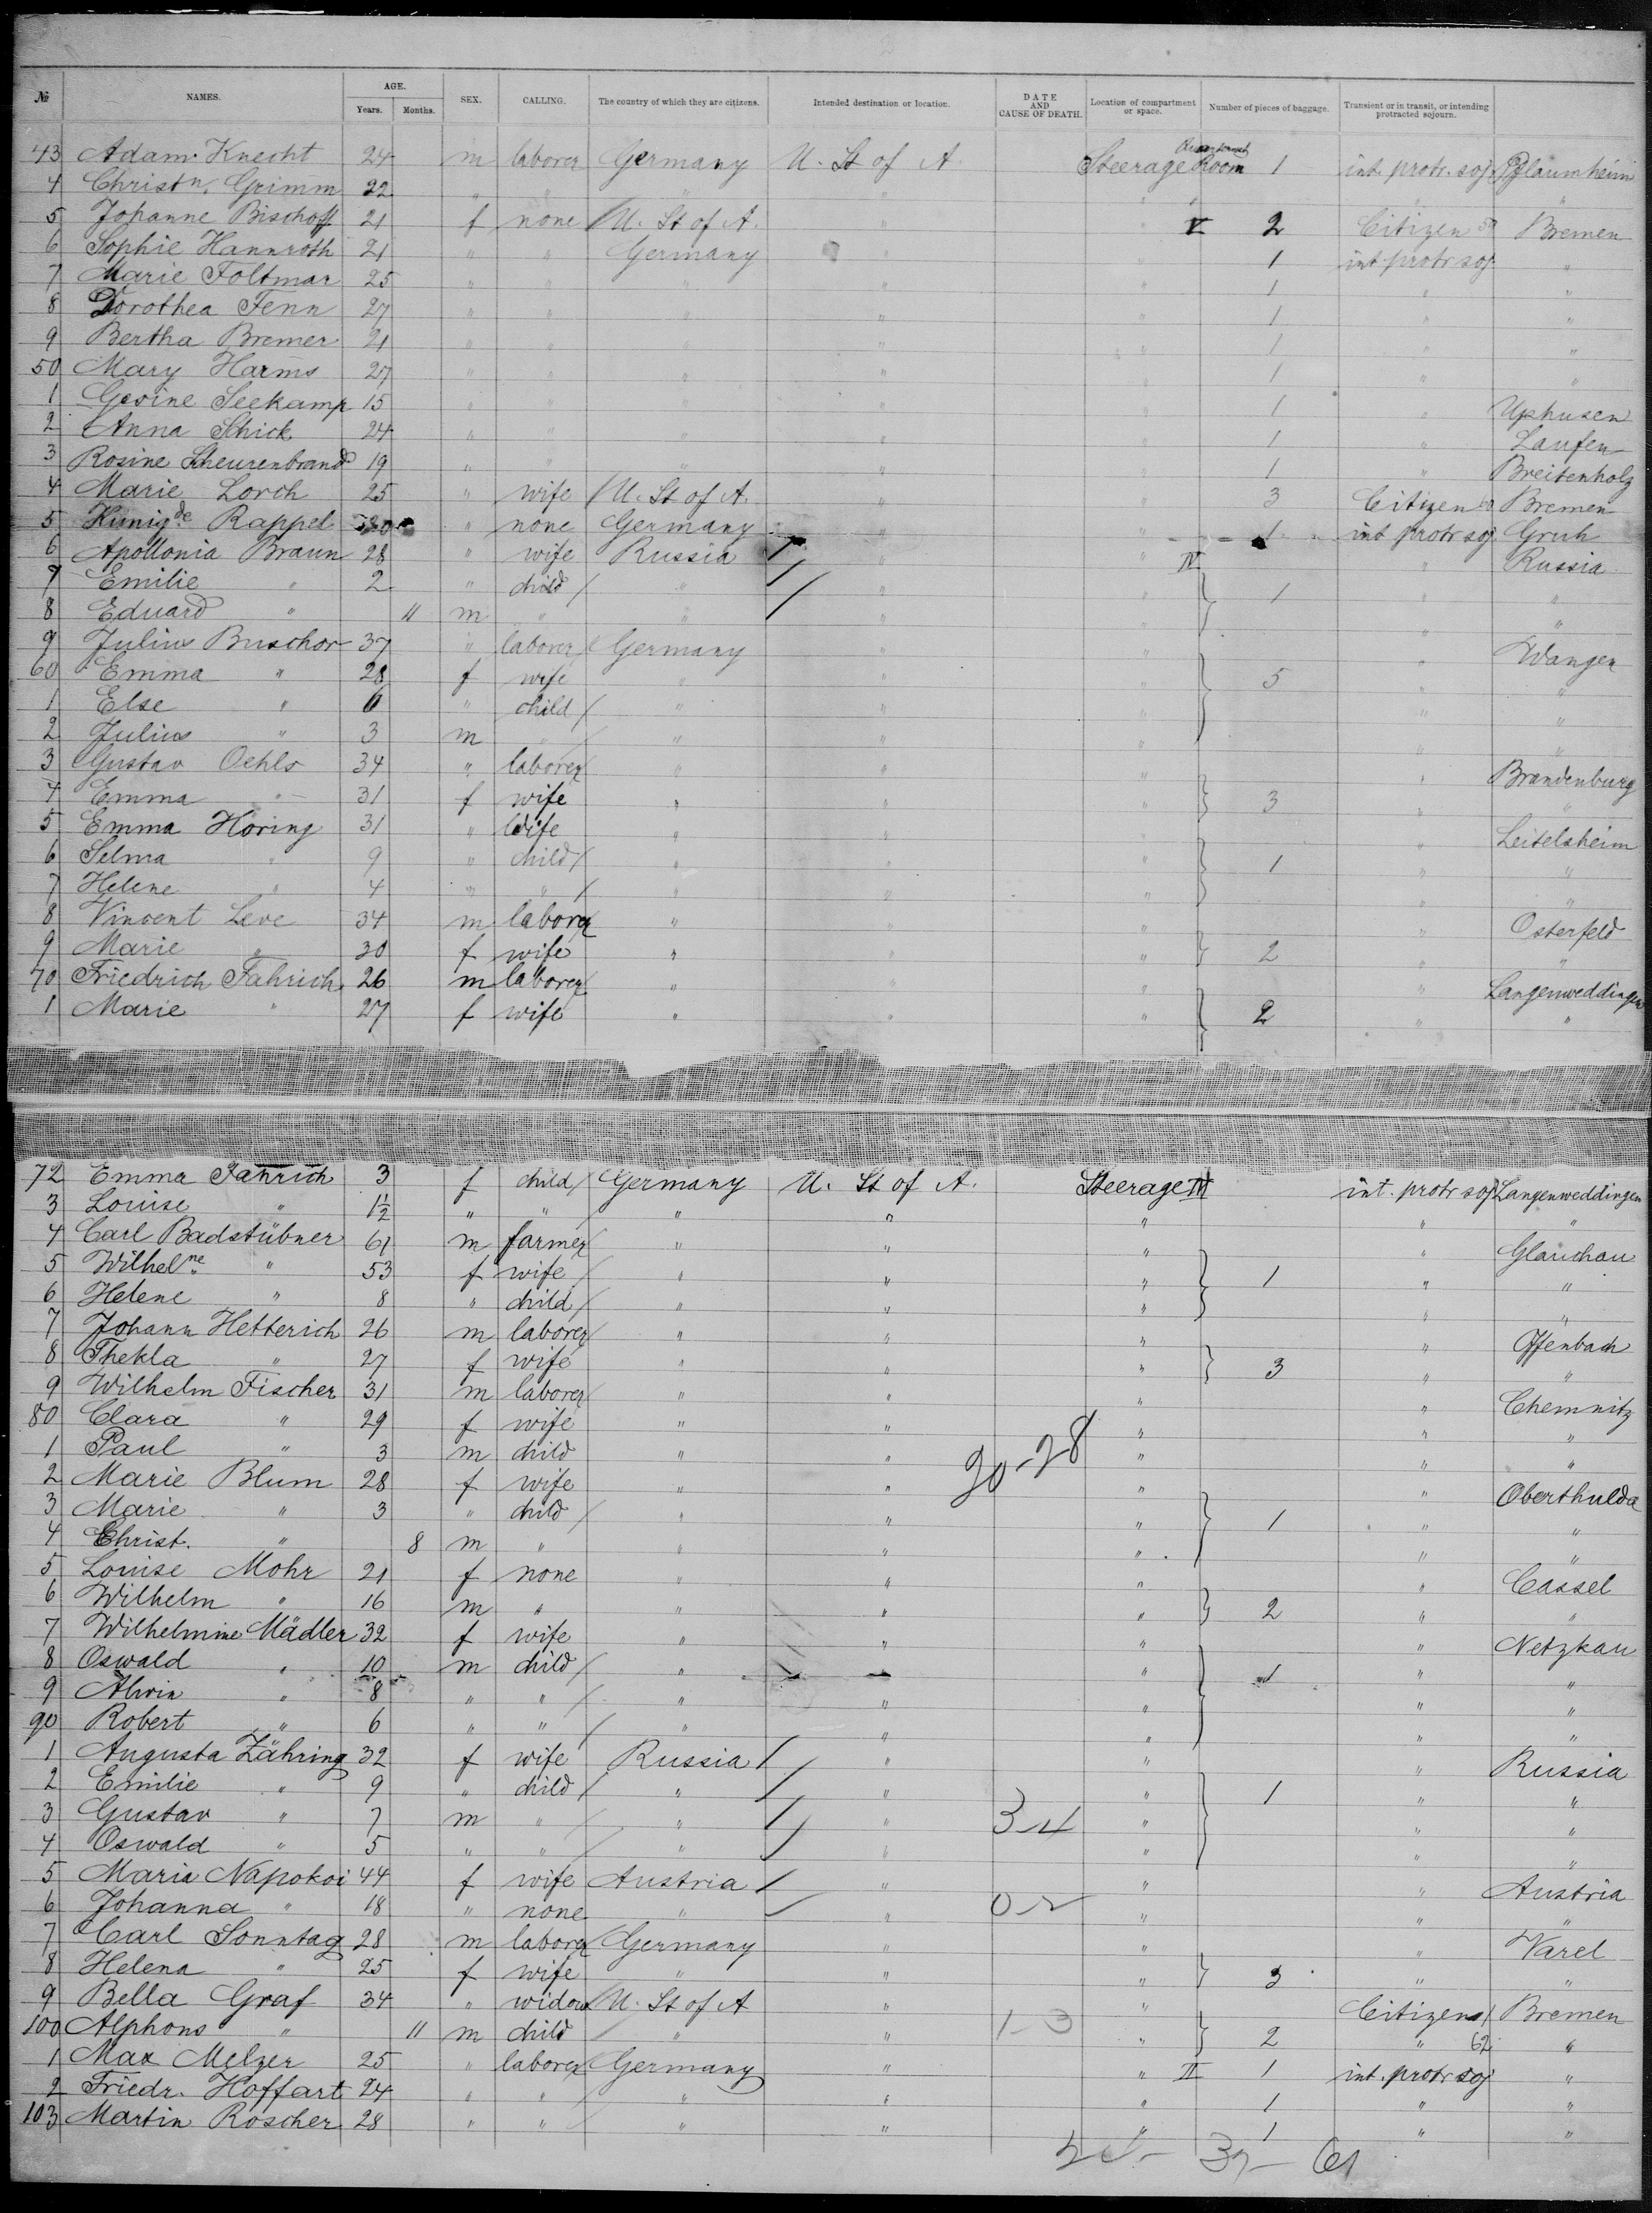 № NAMES. AGE. Years. Months. SEX. CALLING. The country of which they are citizens. Intended destination or location. DATE AND CAUSE OF DEATH. Location of compartment or space. Number of pieces of baggage. Transient or in transit, or intending protracted sojourn.
43 Adam Knecht 24 m laborer Germany U. St of A. Steerage Room 1 int. protr. soj Pflaumheim
4 Christn. Grimm 22 " " " " " " "
5 Johanne Bischoff 21 f none U. St of A. " " V 2 Citizen 59 Bremen
6 Sophie Hannroth 21 " " Germany " " 1 int protr soj "
7 Marie Foltmar 25 " " " " " 1 " "
8 Dorothea Fenn 27 " " " " " 1 " "
9 Bertha Bremer 21 " " " " " 1 " "
50 Mary Harms 27 " " " " " 1 " "
1 Gesine Seekamp 15 " " " " " 1 " Uphusen
2 Anna Schick 24 " " " " " 1 " Laufen
3 Rosine Scheurenbrand 19 " " " " " 1 " Breitenholz
4 Marie Lorch 25 " wife U. St of A. " " 3 Citizen 60 Bremen
5 Kunigde Rappel 30 " none Germany " " 1 int protr soj Gruh
6 Apollonia Braun 28 " wife Russia " " IV " Russia
7 Emilie " 2 " child " " " 1 " "
8 Eduard " 11 m " " " " " "
9 Julius Buschor 37 " laborer Germany " " " Wangen
60 Emma " 28 f wife " " " 5 " "
1 Else " 6 " child " " " " "
2 Julius " 3 m " " " " " "
3 Gustav Oehls 34 " laborer " " " " Brandenburg
4 Emma " 31 f wife " " " 3 " "
5 Emma Horing 31 " Wife " " " " Leitelsheim
6 Selma " 9 " child " " " 1 " "
7 Helene " 4 " " " " " " "
8 Vincent Leve 34 m laborer " " " " Osterfeld
9 Marie " 30 f wife " " " 2 " "
70 Friedrich Fahrich 26 m laborer " " " " Langenweddingen
1 Marie " 27 f wife " " " 2 " "
72 Emma Fahrich 3 f child Germany U. St of A. Steerage IV int. protr soj Langenweddingen
3 Louise " 1½ " " " " " " "
4 Carl Badstübner 61 m farmer " " " " Glauchau
5 Wilhelne " 53 f wife " " " 1 " "
6 Helene " 8 " child " " " " "
7 Johann Hetterich 26 m laborer " " " " Offenbach
8 Thekla " 27 f wife " " " 3 " "
9 Wilhelm Fischer 31 m laborer " " " " Chemnitz
80 Clara " 29 f wife " " " " "
1 Paul " 3 m child " " 30-28 " " "
2 Marie Blum 28 f wife " " " " Oberthulda
3 Marie " 3 " child " " " 1 " "
4 Christ. " 8 m " " " " " "
5 Louise Mohr 21 f none " " " " Cassel
6 Wilhelm " 16 m " " " " 2 " "
7 Wilhelmine Mädler 32 f wife " " " " Netzkau
8 Oswald " 10 m child " " 1 " "
9 Alwin " 8 " " " " " " "
90 Robert " 6 " " " " " " "
1 Augusta Zähring 32 f wife Russia " " " Russia
2 Emilie " 9 " child " " " 1 " "
3 Gustav " 7 m " " " 3-4 " " "
4 Oswald " 5 " " " " " "
5 Maria Napokoi 44 f wife Austria " " " Austria
6 Johanna " 18 " none " " " " "
7 Carl Sonntag 28 m laborer Germany " " " Varel
8 Helena " 25 f wife " " " 3 " "
9 Bella Graf 34 " widow U. St of A " " Citizen 61 Bremen
100 Alphons " 11 m child " " 1-3 " 2 " 62 "
1 Max Melzer 25 " laborer Germany " " II 1 int. protr soj "
2 Friedr. Hoffart 24 " " " " " 1 " "
103 Martin Roscher 28 " " " " " 1 " "
61